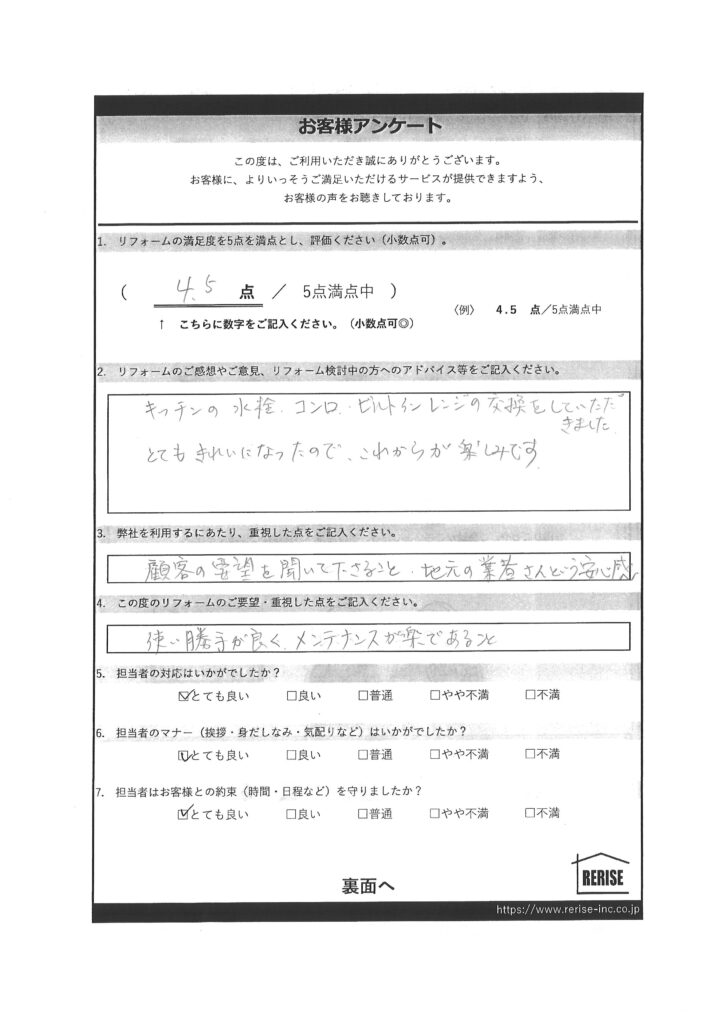 お客様アンケート
この度は、ご利用いただき誠にありがとうございます。
お客様に、よりいっそうご満足いただけるサービスが提供できますよう、
お客様の声をお聴きしております。
1. リフォームの満足度を5点を満点とし、評価ください（小数点可）。
（ 4.5 点 ／ 5点満点中 ）
〈例〉 4.5 点／5点満点中
↑ こちらに数字をご記入ください。（小数点可◎）
2. リフォームのご感想やご意見、リフォーム検討中の方へのアドバイス等をご記入ください。
キッチンの水栓．コンロ．ビルトインレンジの交換をしていただ
きました
とてもきれいになったので、これからが楽しみです
3. 弊社を利用するにあたり、重視した点をご記入ください。
顧客の要望を聞いて下さること．地元の業者さんという安心感
4. この度のリフォームのご要望・重視した点をご記入ください。
使い勝手が良く、メンテナンスが楽であること
5. 担当者の対応はいかがでしたか？
☑とても良い □良い □普通 □やや不満 □不満
6. 担当者のマナー（挨拶・身だしなみ・気配りなど）はいかがでしたか？
☑とても良い □良い □普通 □やや不満 □不満
7. 担当者はお客様との約束（時間・日程など）を守りましたか？
☑とても良い □良い □普通 □やや不満 □不満
裏面へ
RERISE
https://www.rerise-inc.co.jp